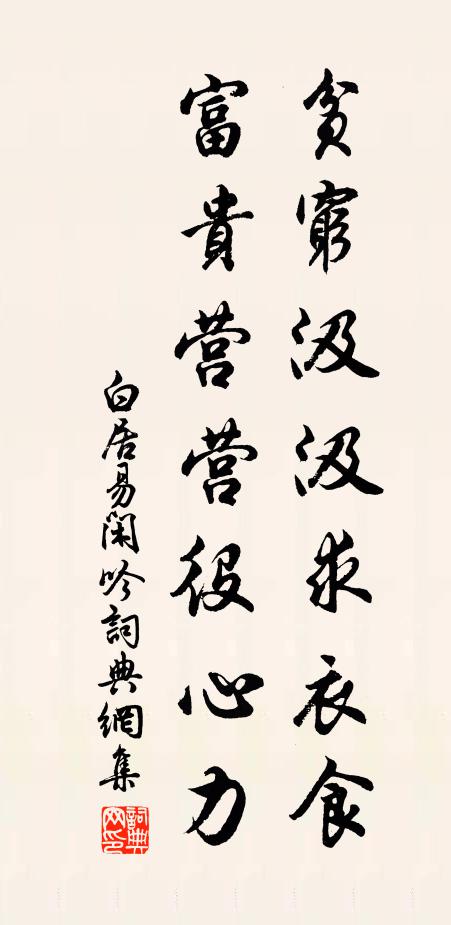 貧窮汲汲求衣食
富貴营营役心力
白居易閑吟詞典網集
詞典网印